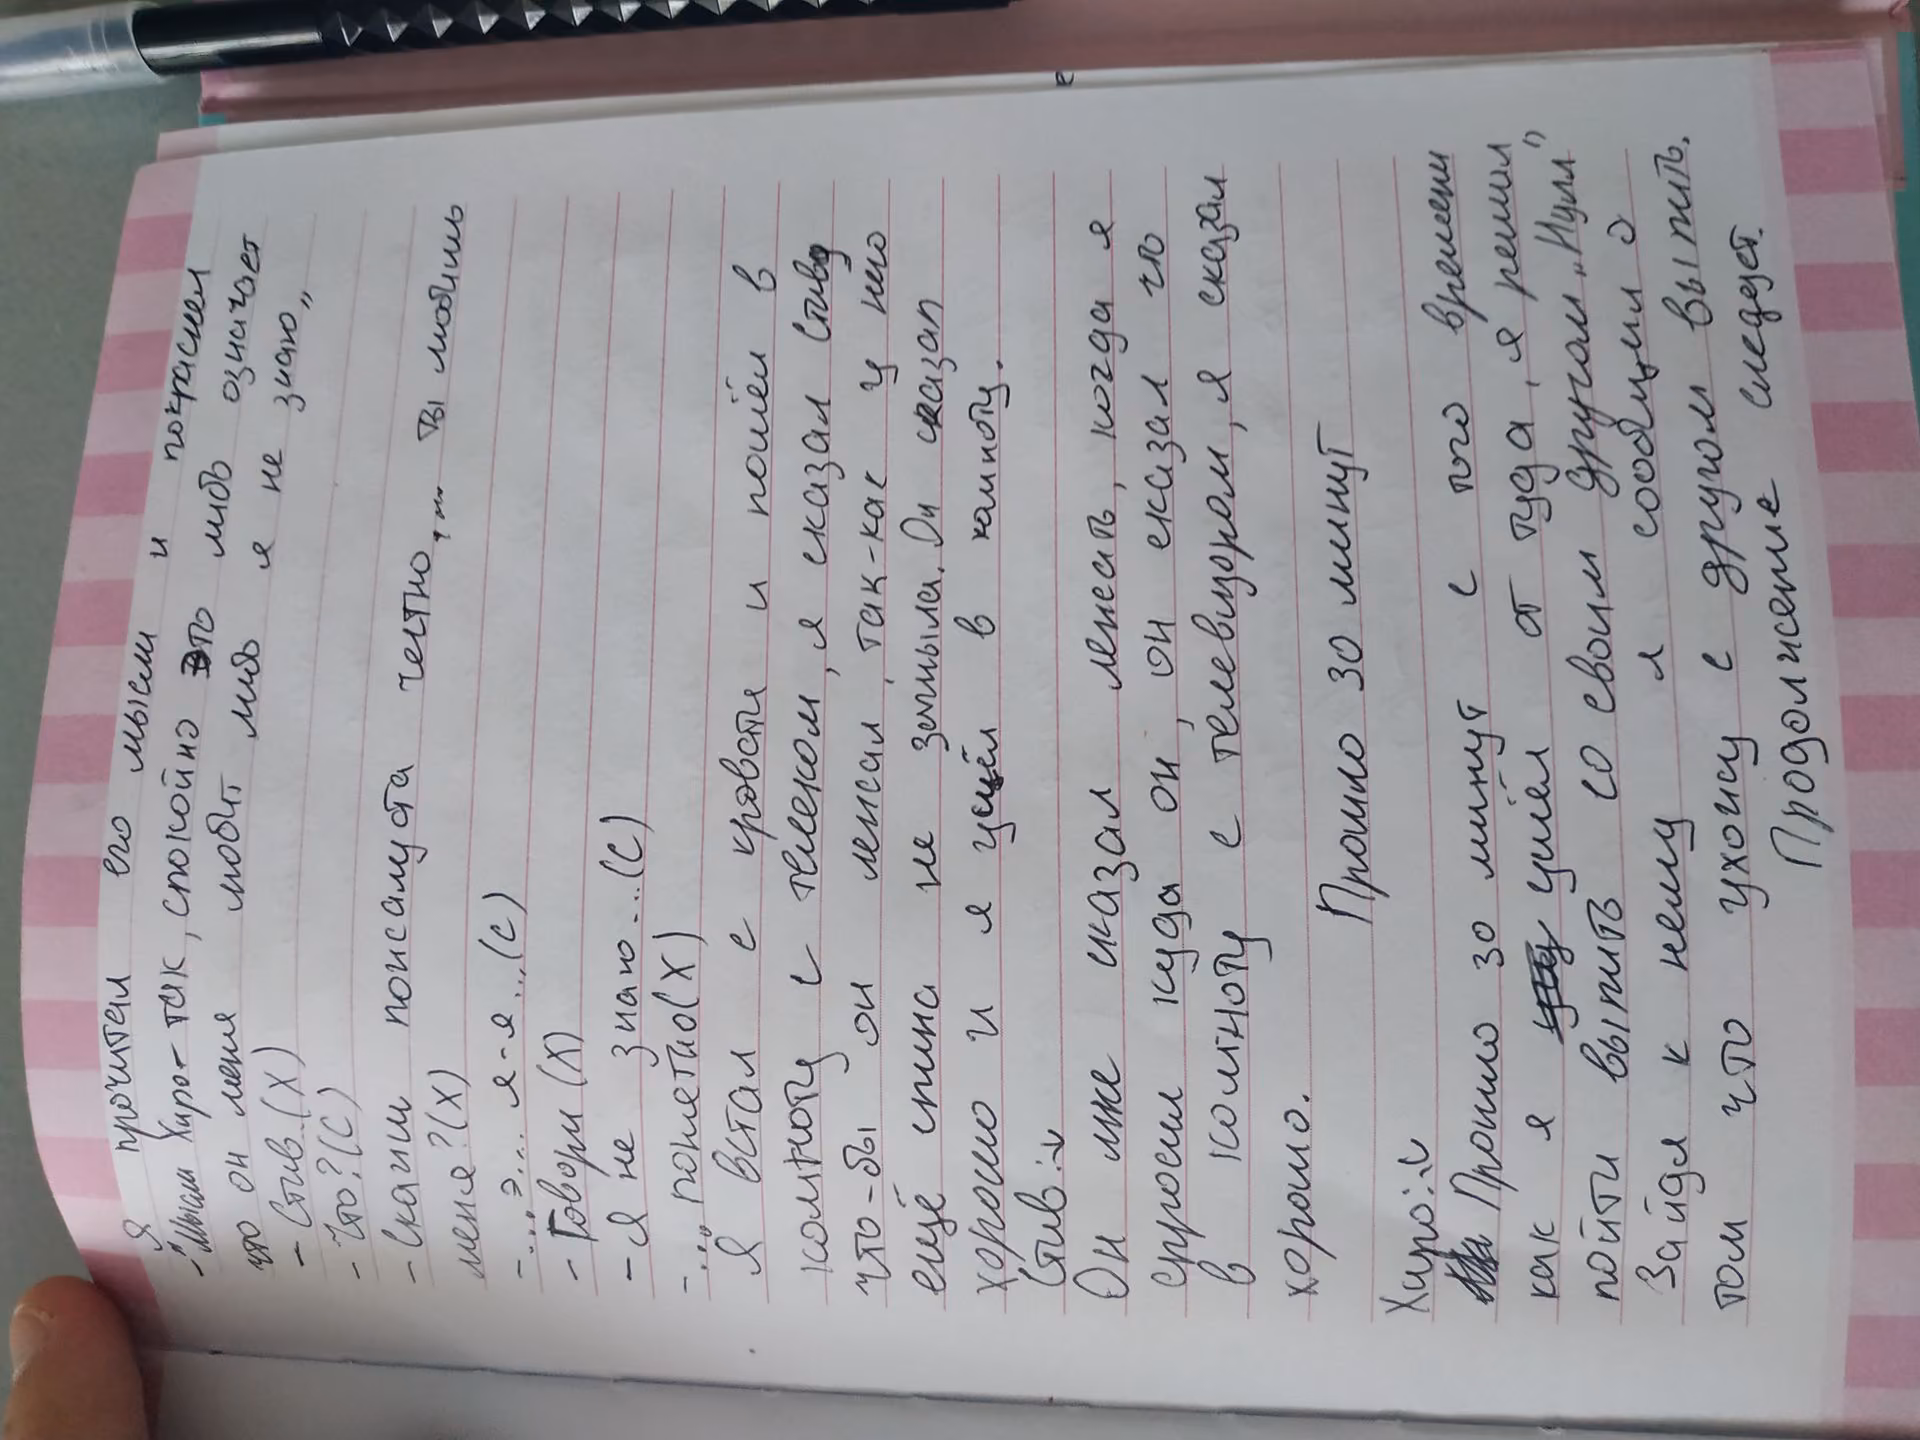 Я прочитал его мысли и покраснел
-"Мысли Хиро- так, спокойно это либо означает
что он меня любит либо я не знаю„
- Стив.(Х)
- Что?(С)
- Скажи пожалуста честно,... ты любишь
меня?(Х)
-...э... я-я...(С)
- Говори (Х)
- Я не знаю...(С)
-... понетно(Х)
Я встал с кровати и пошёл в
комноту с телеком, я сказал Стиву
что-бы он лежал, так-как у него
ещё спина не зажыла. Он сказал
хорошо и я ушёл в камноту.
Стив:↓
Он мне сказал лежать, когда я
спросил куда он, он сказал что
в комноту с телевизором, я сказал
хорошо.
Прошло 30 минут
Хиро:↓
Прошло 30 минут с того времени
как я ушёл от туда, я решил
пойти выпить со своим другом „Нулл"
Зайдя к нему я сообщил о
том что ухожу с другом выпить.
Продолжение следует.
е